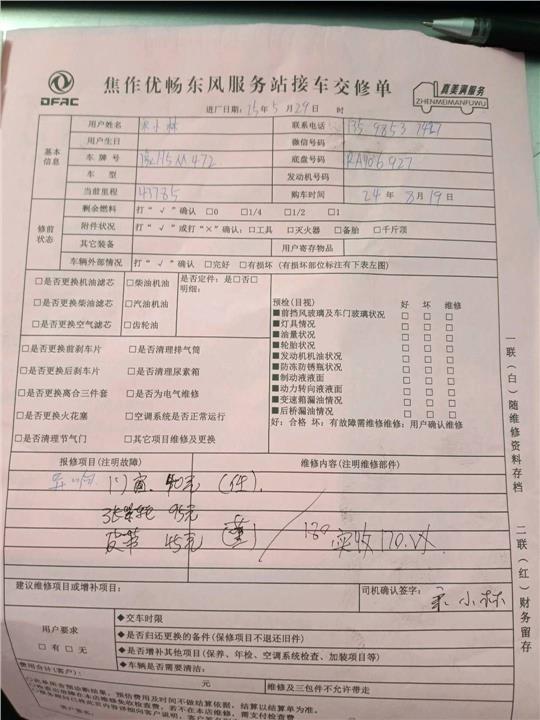 DFAC
焦作优畅东风服务站接车交修单
真美满服务
ZHENMEIMANFUWU
进厂日期：15年5月29日 时
基本信息
用户姓名 小林 联系电话
用户生日 微信号码
车牌号 底盘号码 RA406927
车型 发动机号码
当前里程 43785 购车时间 24年8月19日
修前状态
剩余燃料 打“√”确认 □0 □1/4 □1/2 □1
附件状况 打“√”或打“×”确认：□工具 □灭火器 □备胎 □千斤顶
其它装备 用户寄存物品
车辆外部情况 打“√”确认 □完好 □有损坏（有损坏部位标注有下表左图）
□是否更换机油滤芯 □柴油机油 是否定件：是□否□
明细：
□是否更换柴油滤芯 □汽油机油
□是否更换空气滤芯 □齿轮油
预检(目视) 好 坏 维修
■前挡风玻璃及车门玻璃状况 □ □ □
■灯具情况 □ □ □
■油量状况 □ □ □
■轮胎状况 □ □ □
■发动机机油状况 □ □ □
■防冻防锈瓶状况 □ □ □
■制动液液面 □ □ □
■动力转向液液面 □ □ □
■变速箱漏油情况 □ □ □
■后桥漏油情况 □ □ □
好：合格 坏：有故障需维修维修：用户确认维修
□是否更换前刹车片 □是否清理排气筒
□是否更换后刹车片 □是否清理尿素箱
□是否更换离合三件套 □是否为电气维修
□是否更换火花塞 □空调系统是否正常运行
□是否清理节气门 □其它项目维修及更换
报修项目(注明故障) 维修内容(注明维修部件)
异响 门窗 40元（件）
张紧轮 95元
皮带 45元 180 实收170.
建议维修项目或增补项目： 司机确认签字： 小林
用户要求
□有 □无
◆交车时限
◆是否归还更换的备件(保修项目不退还旧件)
◆是否增补其他项目(保养、年检、空调系统检查、加装项目等)
◆车辆是否需要清洁：
费用合计(客户)： 元 维修及三包件不允许带走
一联（白）随维修资料存档 二联（红）财务留存